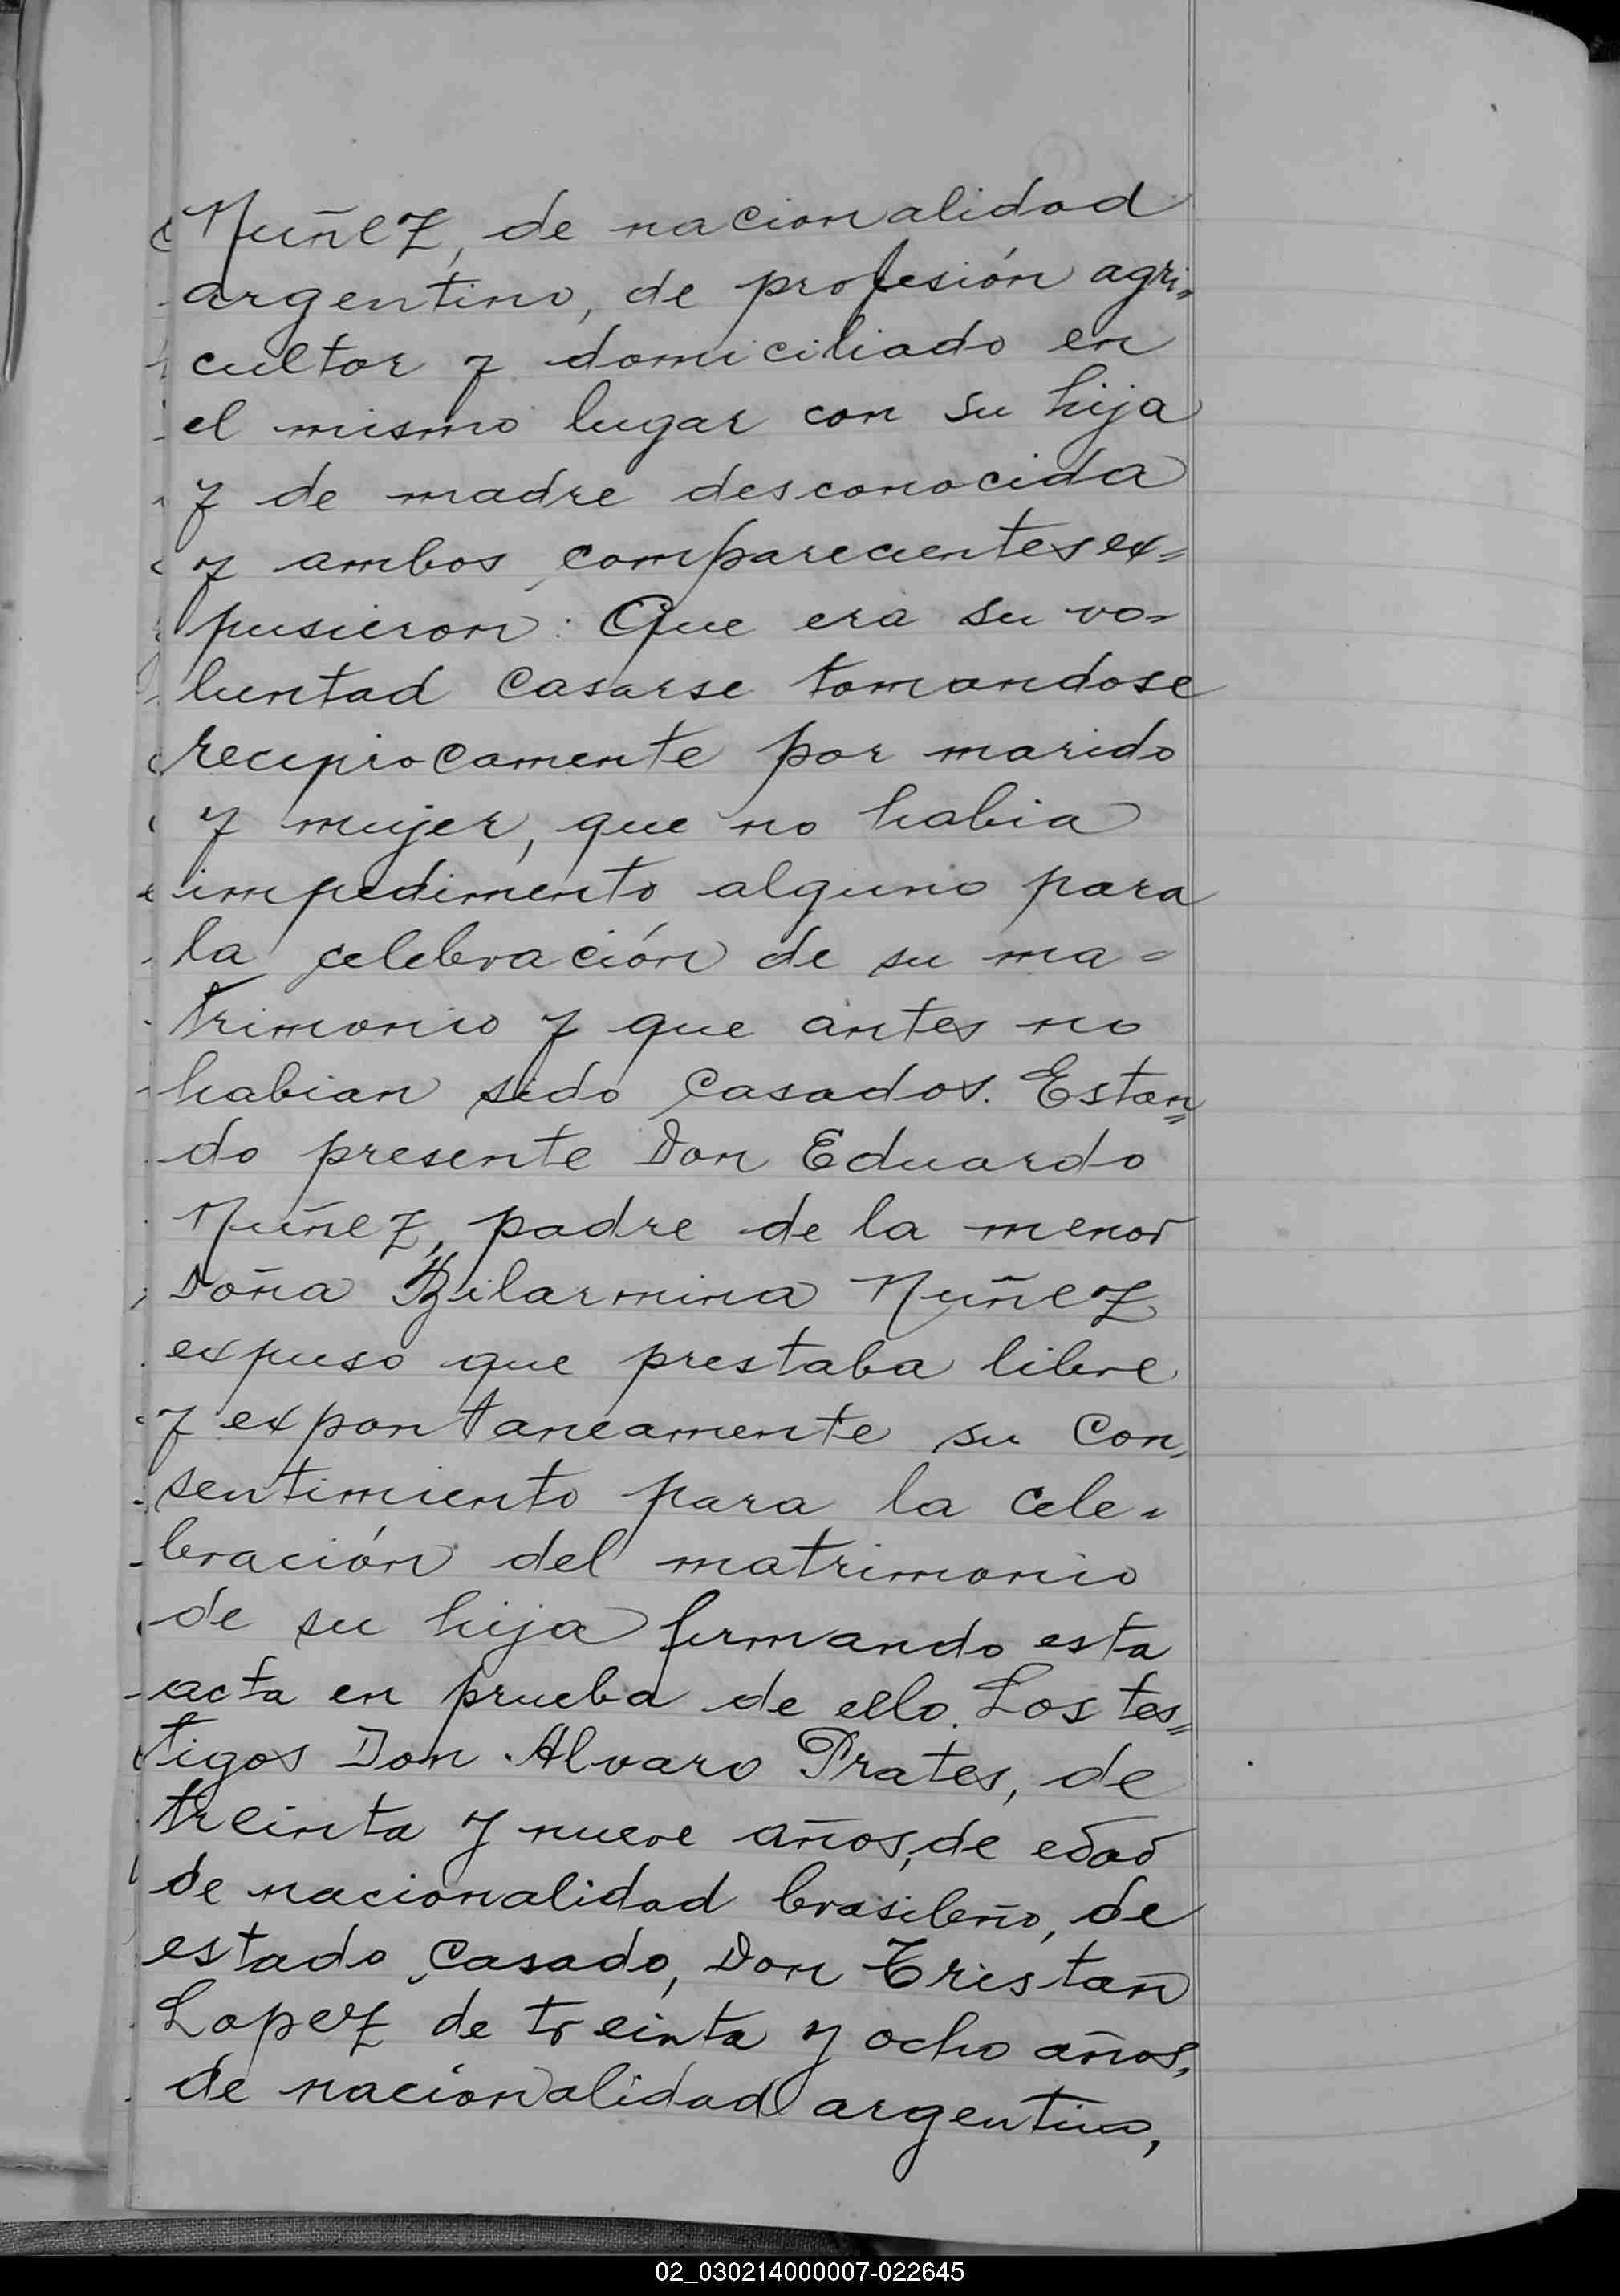 Nuñez, de nacionalidad
argentino, de profesión agri-
cultor y domiciliado en
el mismo lugar con su hija
y de madre desconocida
y ambos comparecientes ex=
pusieron: Que era su vo=
luntad casarse tomandose
reciprocamente por marido
y mujer, que no habia
impedimento alguno para
la celebración de su ma=
trimonio y que antes no
habian sido casados. Estan=
do presente Don Eduardo
Nuñez, padre de la menor
Doña Bilarmina Nuñez
expuso que prestaba libre
y expontaneamente su con=
sentimiento para la cele=
bración del matrimonio
de su hija firmando esta
acta en prueba de ello. Los tes=
tigos Don Alvaro Prates, de
treinta y nueve años, de edad
de nacionalidad brasileño, de
estado casado, Don Tristan
Lopez de treinta y ocho años,
de nacionalidad argentino,
02_030214000007-022645